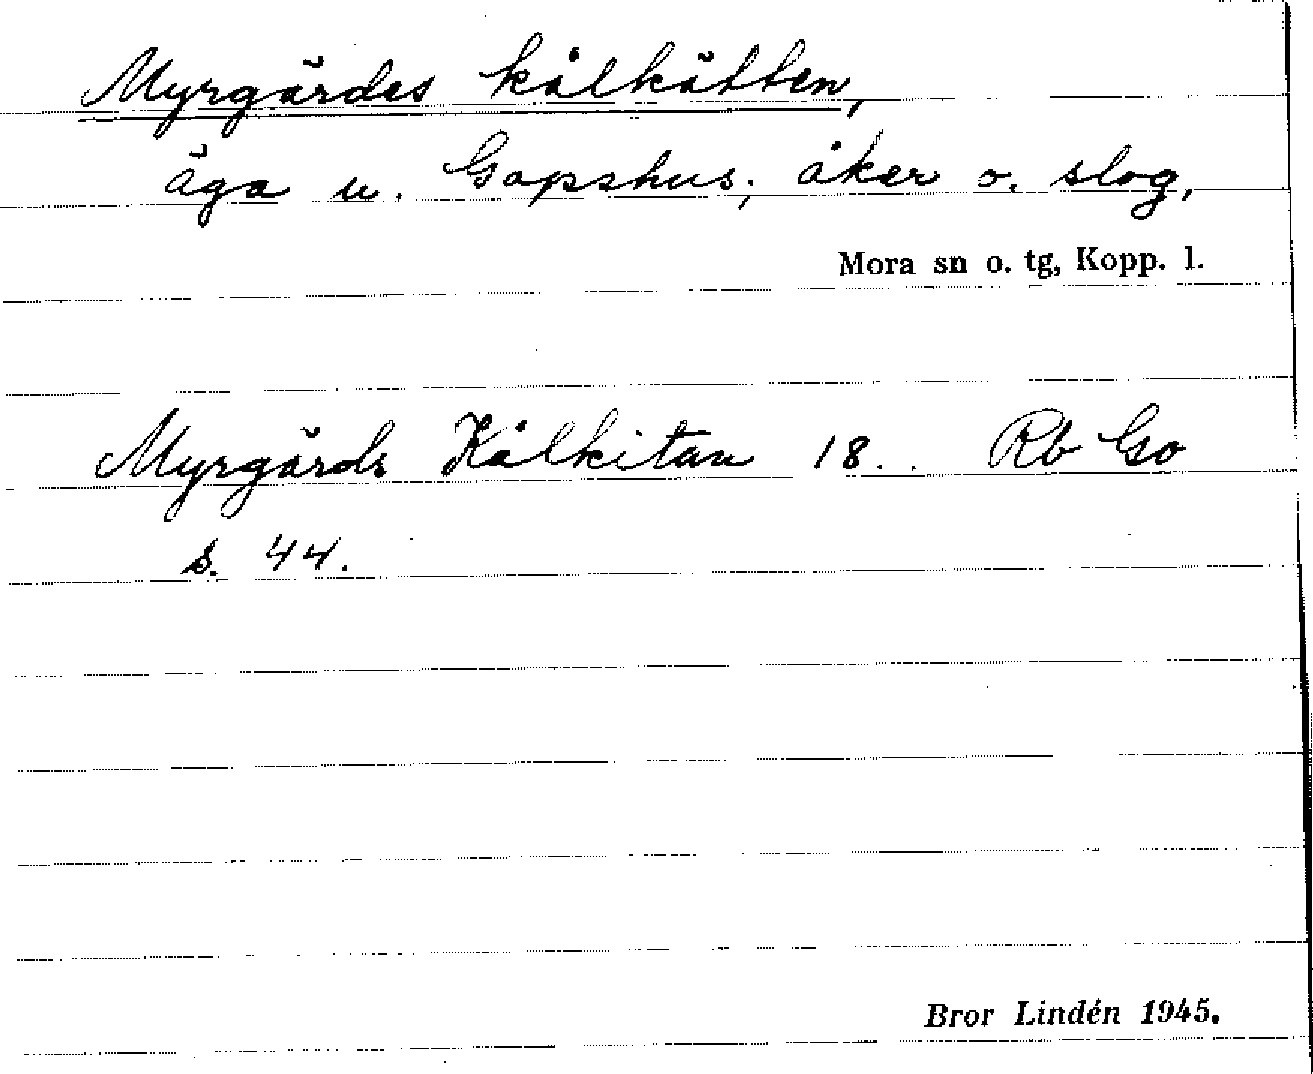 Myrgärdes kålkätten,
äga u. Gopshus; åker o. slog,
Mora sn o. tg, Kopp. l.
Myrgärds Kålkitan 18.. Rb Go
s. 44.
Bror Lindén 1945.